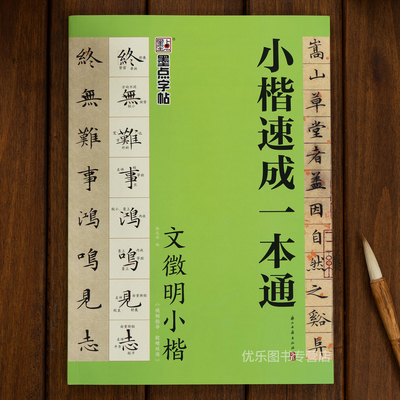 嵩山草堂者盖因自然之谿异
小楷速成一本通
墨点字帖
文徵明小楷
終無難事鴻鳴見志
終無難事鴻鳴見志
优乐图书专营店